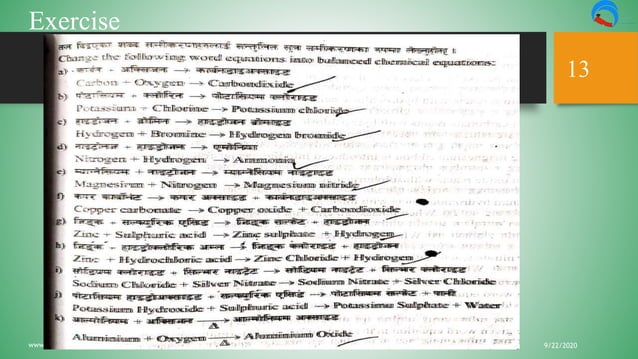 Exercise
13
तल दिइएका शब्द समीकरणहरूलाई सन्तुलित सूत्र समीकरणका रूपमा
Change the following word equations into balanced chemical equations:
a) कार्बन + अक्सिजन → कार्बनडाइअक्साइड
Carbon + Oxygen → Carbondixide
b) पोटासियम + क्लोरिन → पोटासियम क्लोराइड
Potassium + Chlorine → Potassium chloride
c) हाइड्रोजन + ब्रोमिन → हाइड्रोजन ब्रोमाइड
Hydrogen + Bromine → Hydrogen bromide
d) नाइट्रोजन + हाइड्रोजन → एमोनिया
Nitrogen + Hydrogen → Ammonia
e) म्याग्नेसियम + नाइट्रोजन → म्याग्नेसियम नाइट्राइड
Magnesium + Nitrogen → Magnesium nitride
f) कपर कार्बोनेट → कपर अक्साइड + कार्बनडाइअक्साइड
Copper carbonate → Copper oxide + Carbondioxide
g) जिङ्क + सल्फ्युरिक एसिड → जिङ्क सल्फेट + हाइड्रोजन
Zinc + Sulphuric acid → Zinc sulphate + Hydrogen
h) जिङ्क + हाइड्रोक्लोरिक अम्ल → जिङ्क क्लोराइड + हाइड्रोजन
Zinc + Hydrochloric acid → Zinc Chloride + Hydrogen
i) सोडियम क्लोराइड + सिल्भर नाइट्रेट → सोडियम नाइट्रेट + सिल्भर क्लोराइड
Sodium Chloride + Silver Nitrate → Sodium Nitrate + Silver Chloride
j) पोटासियम हाइड्रोअक्साइड + सल्फ्युरिक एसिड → पोटासियम सल्फेट + पानी
Potassium Hydroxide + Sulphuric acid → Potassium Sulphate + Water
k) आल्मोनियम + अक्सिजन →Δ आल्मोनियम अक्साइड
Aluminium + Oxygen →Δ Aluminium Oxide
www
9/22/2020